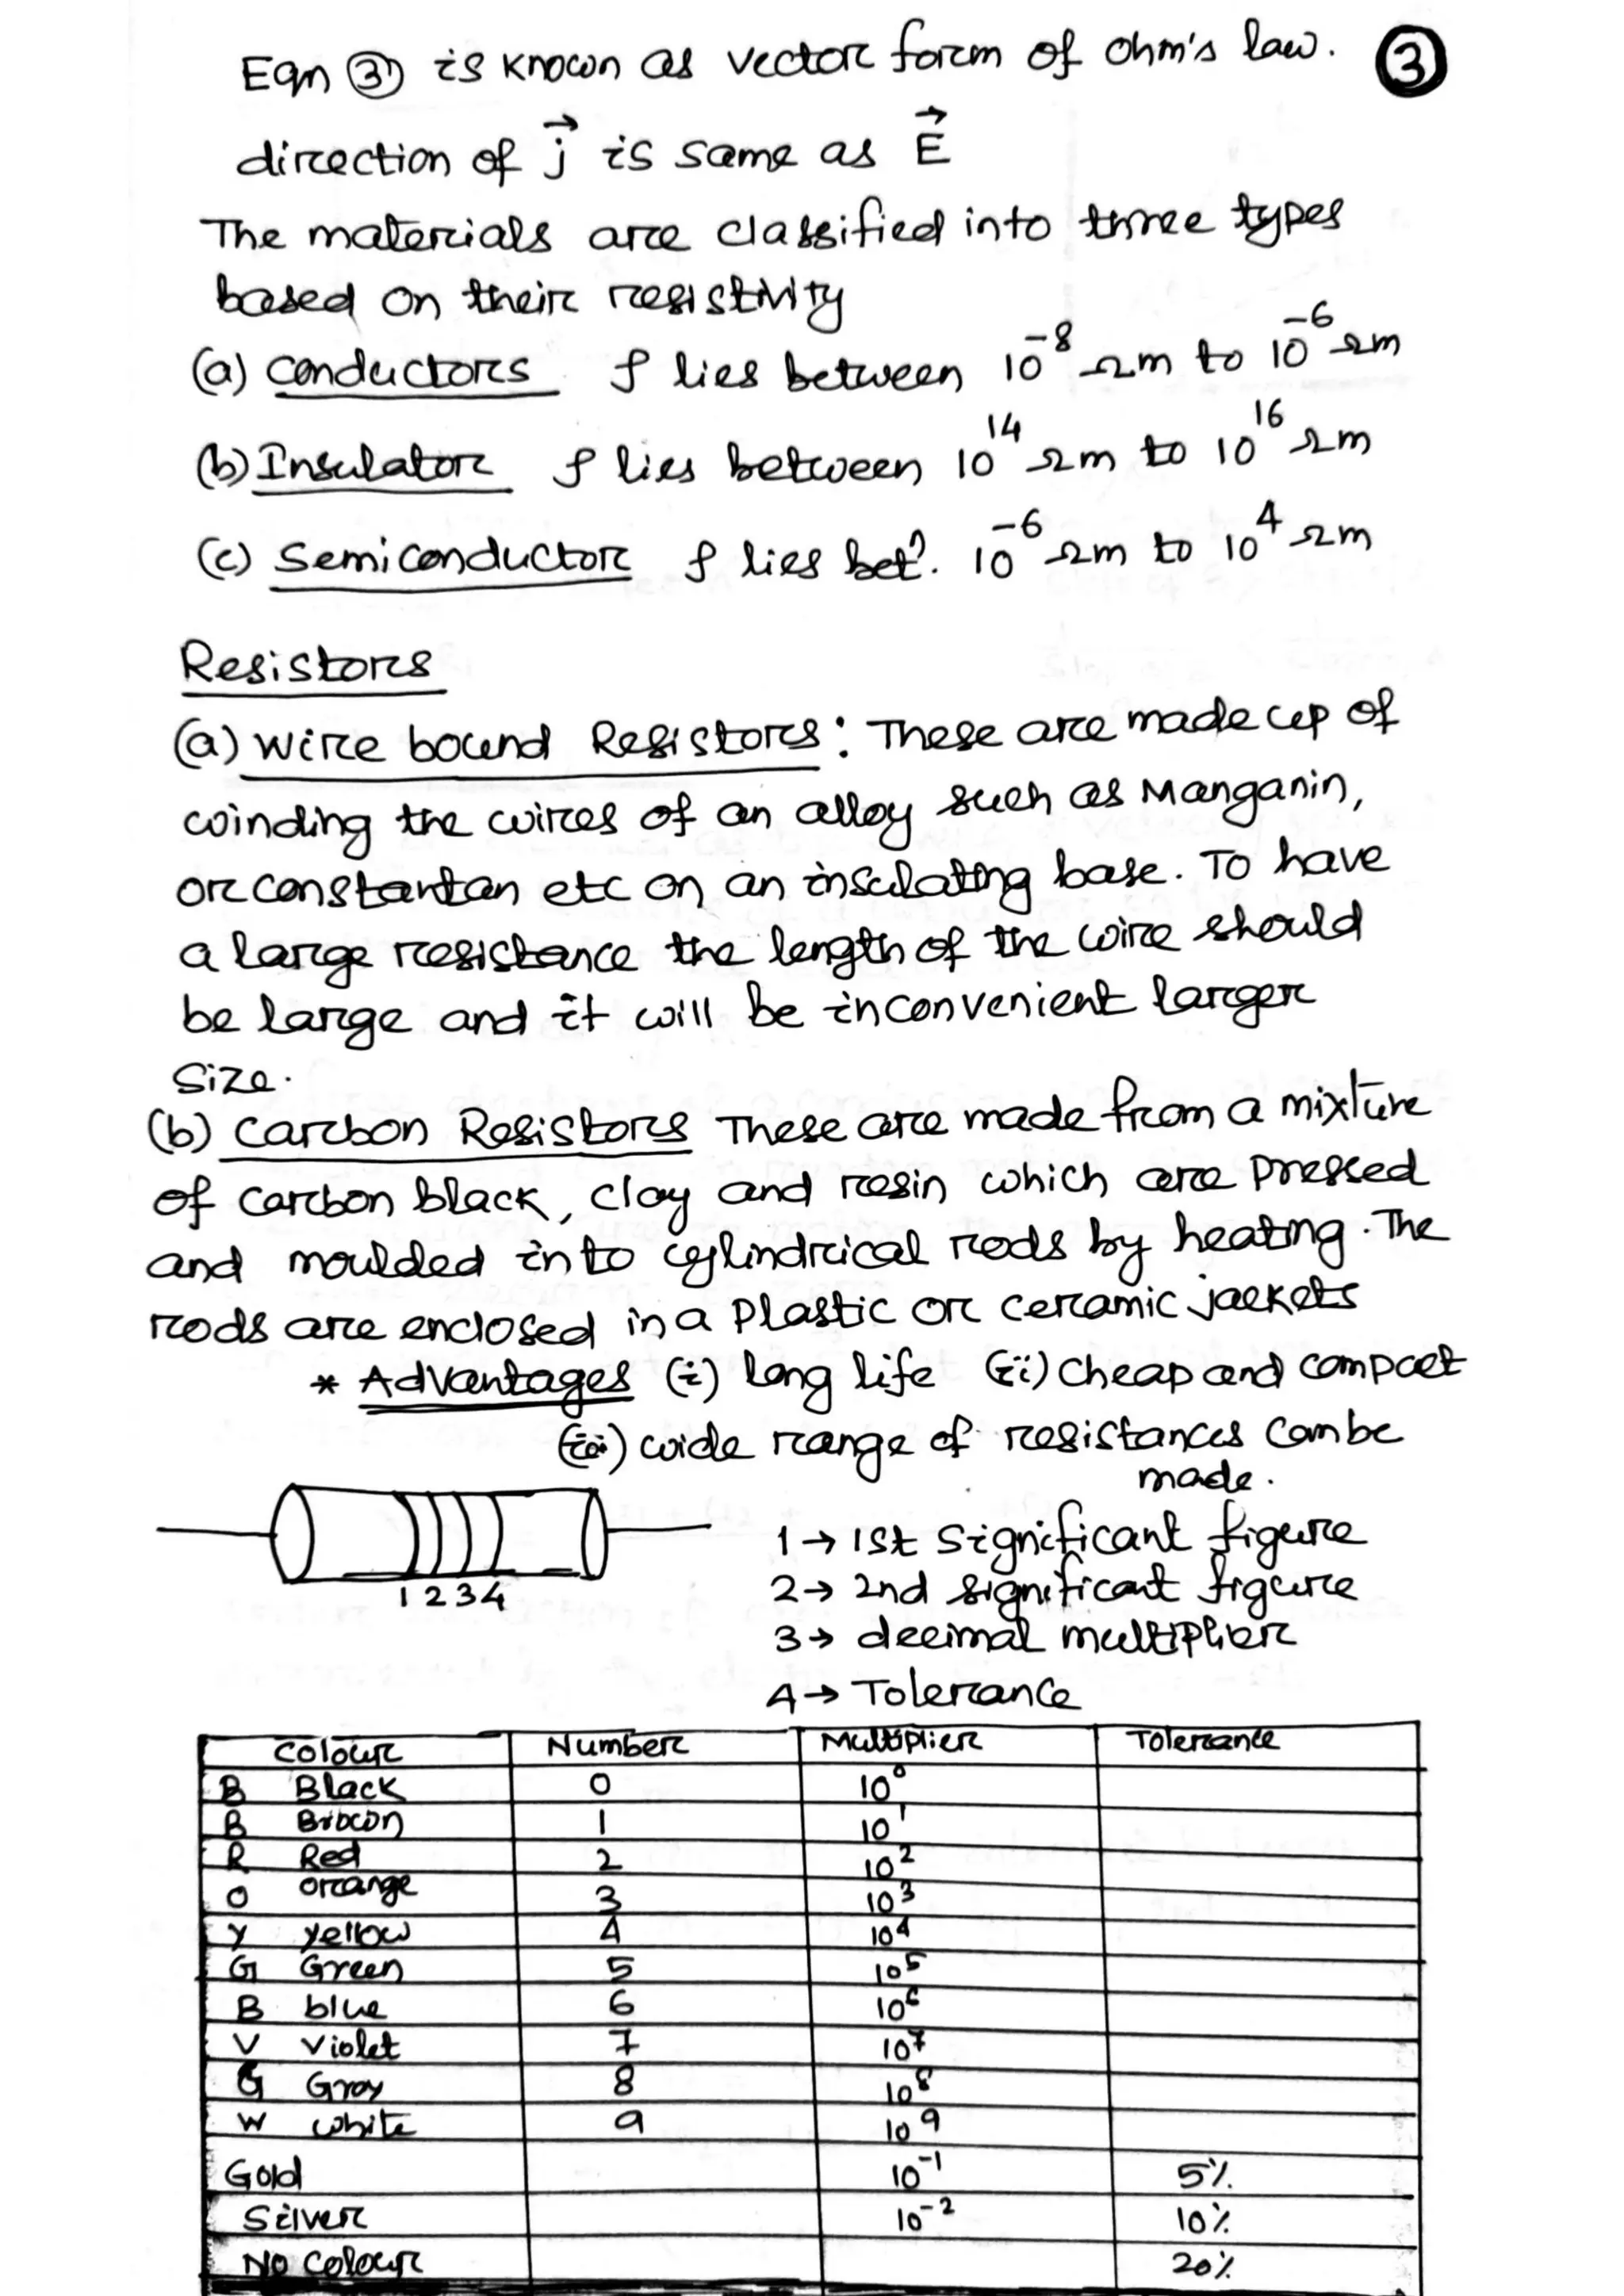 Eqn ③ is known as vector form of ohm's law. ③
direction of j⃗ is same as E⃗
The materials are classified into three types
based on their resistivity
(a) Conductors ρ lies between 10⁻⁸ Ωm to 10⁻⁶ Ωm
(b) Insulator ρ lies between 10¹⁴ Ωm to 10¹⁶ Ωm
(c) Semiconductor ρ lies betⁿ. 10⁻⁶ Ωm to 10⁴ Ωm
Resistors
(a) wire bound Resistors: These are made up of
winding the wires of an alloy such as Manganin,
or constantan etc on an insulating base. To have
a large resistance the length of the wire should
be large and it will be inconvenient larger
Size.
(b) Carbon Resistors These are made from a mixture
of carbon black, clay and resin which are pressed
and moulded into cylindrical rods by heating. The
rods are enclosed in a Plastic or ceramic jackets
* Advantages (i) long life (ii) Cheap and compact
(iii) wide range of resistances can be
made.
1 → 1st Significant figure
2 → 2nd significant figure
1 2 3 4
3 → decimal multiplier
4 → Tolerance
Colour Number Multiplier Tolerance
B Black 0 10⁰
B Brown 1 10¹
R Red 2 10²
O orange 3 10³
Y yellow 4 10⁴
G Green 5 10⁵
B blue 6 10⁶
V Violet 7 10⁷
G Gray 8 10⁸
W white 9 10⁹
Gold 10⁻¹ 5%
Silver 10⁻² 10%
No Colour 20%